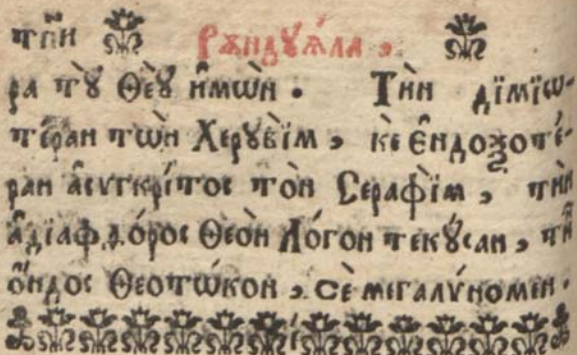 тпи҆ Рѫндꙋѧ́ла,
ра тꙋ̀ Ѳеꙋ̀ и҆мѡ̀н. Тѝн дїмїѡ-
те́ран тѡ̀н Херꙋві̀м, кѐ є҆ндоѯоте́-
ран а҆сѵгкрі́тос то̀н Серафі̀м, тѝн
а҆дїафѳо́рос Ѳео̀н Ло́гон текꙋ́сан, тѝ
ѻ҆́ндос Ѳеотѡ́кон, сѐ мегалѵ́номен.